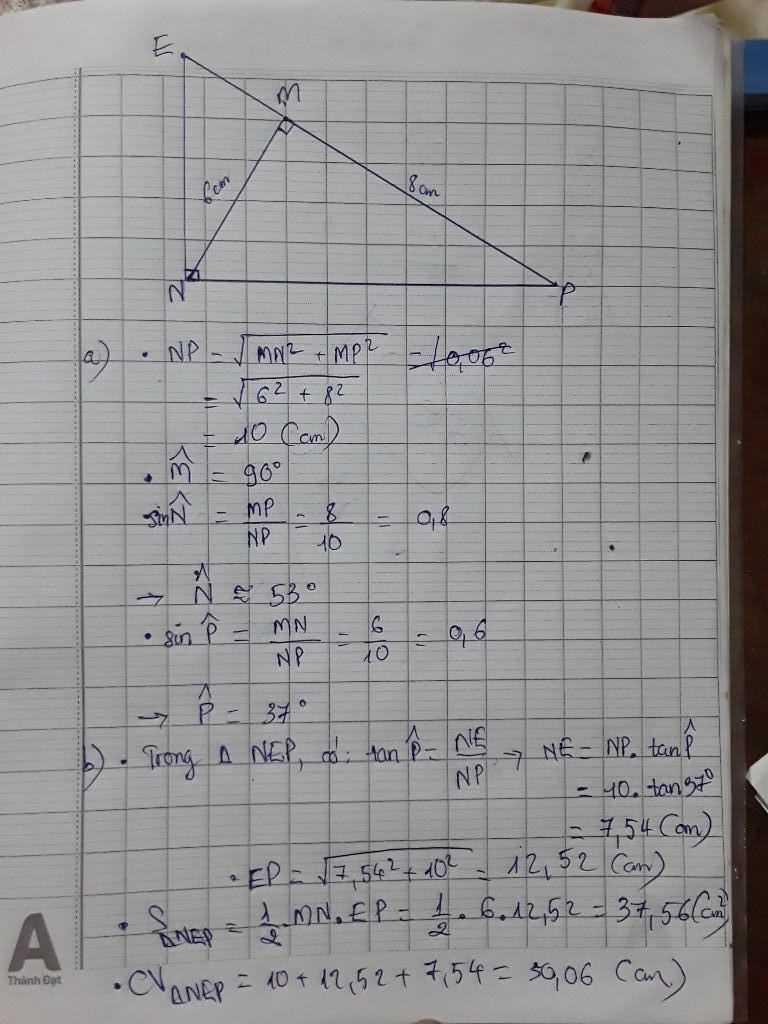 E
M
6cm
8cm
N
P
a) • NP = √(MN² + MP²) = √0,06²
= √(6² + 8²)
= 10 (cm)
• M̂ = 90°
• sin N̂ = MP/NP = 8/10 = 0,8
→ N̂ ≈ 53°
• sin P̂ = MN/NP = 6/10 = 0,6
→ P̂ = 37°
b) • Trong Δ NEP, có: tan P̂ = NE/NP → NE = NP. tan P̂
= 10. tan 37°
= 7,54 (cm)
• EP = √(7,54² + 10²) = 12,52 (cm)
• S ΔNEP = 1/2 . MN. EP = 1/2 . 6. 12,52 = 37,56 (cm²)
• CV ΔNEP = 10 + 12,52 + 7,54 = 30,06 (cm)
A
Thành Đạt